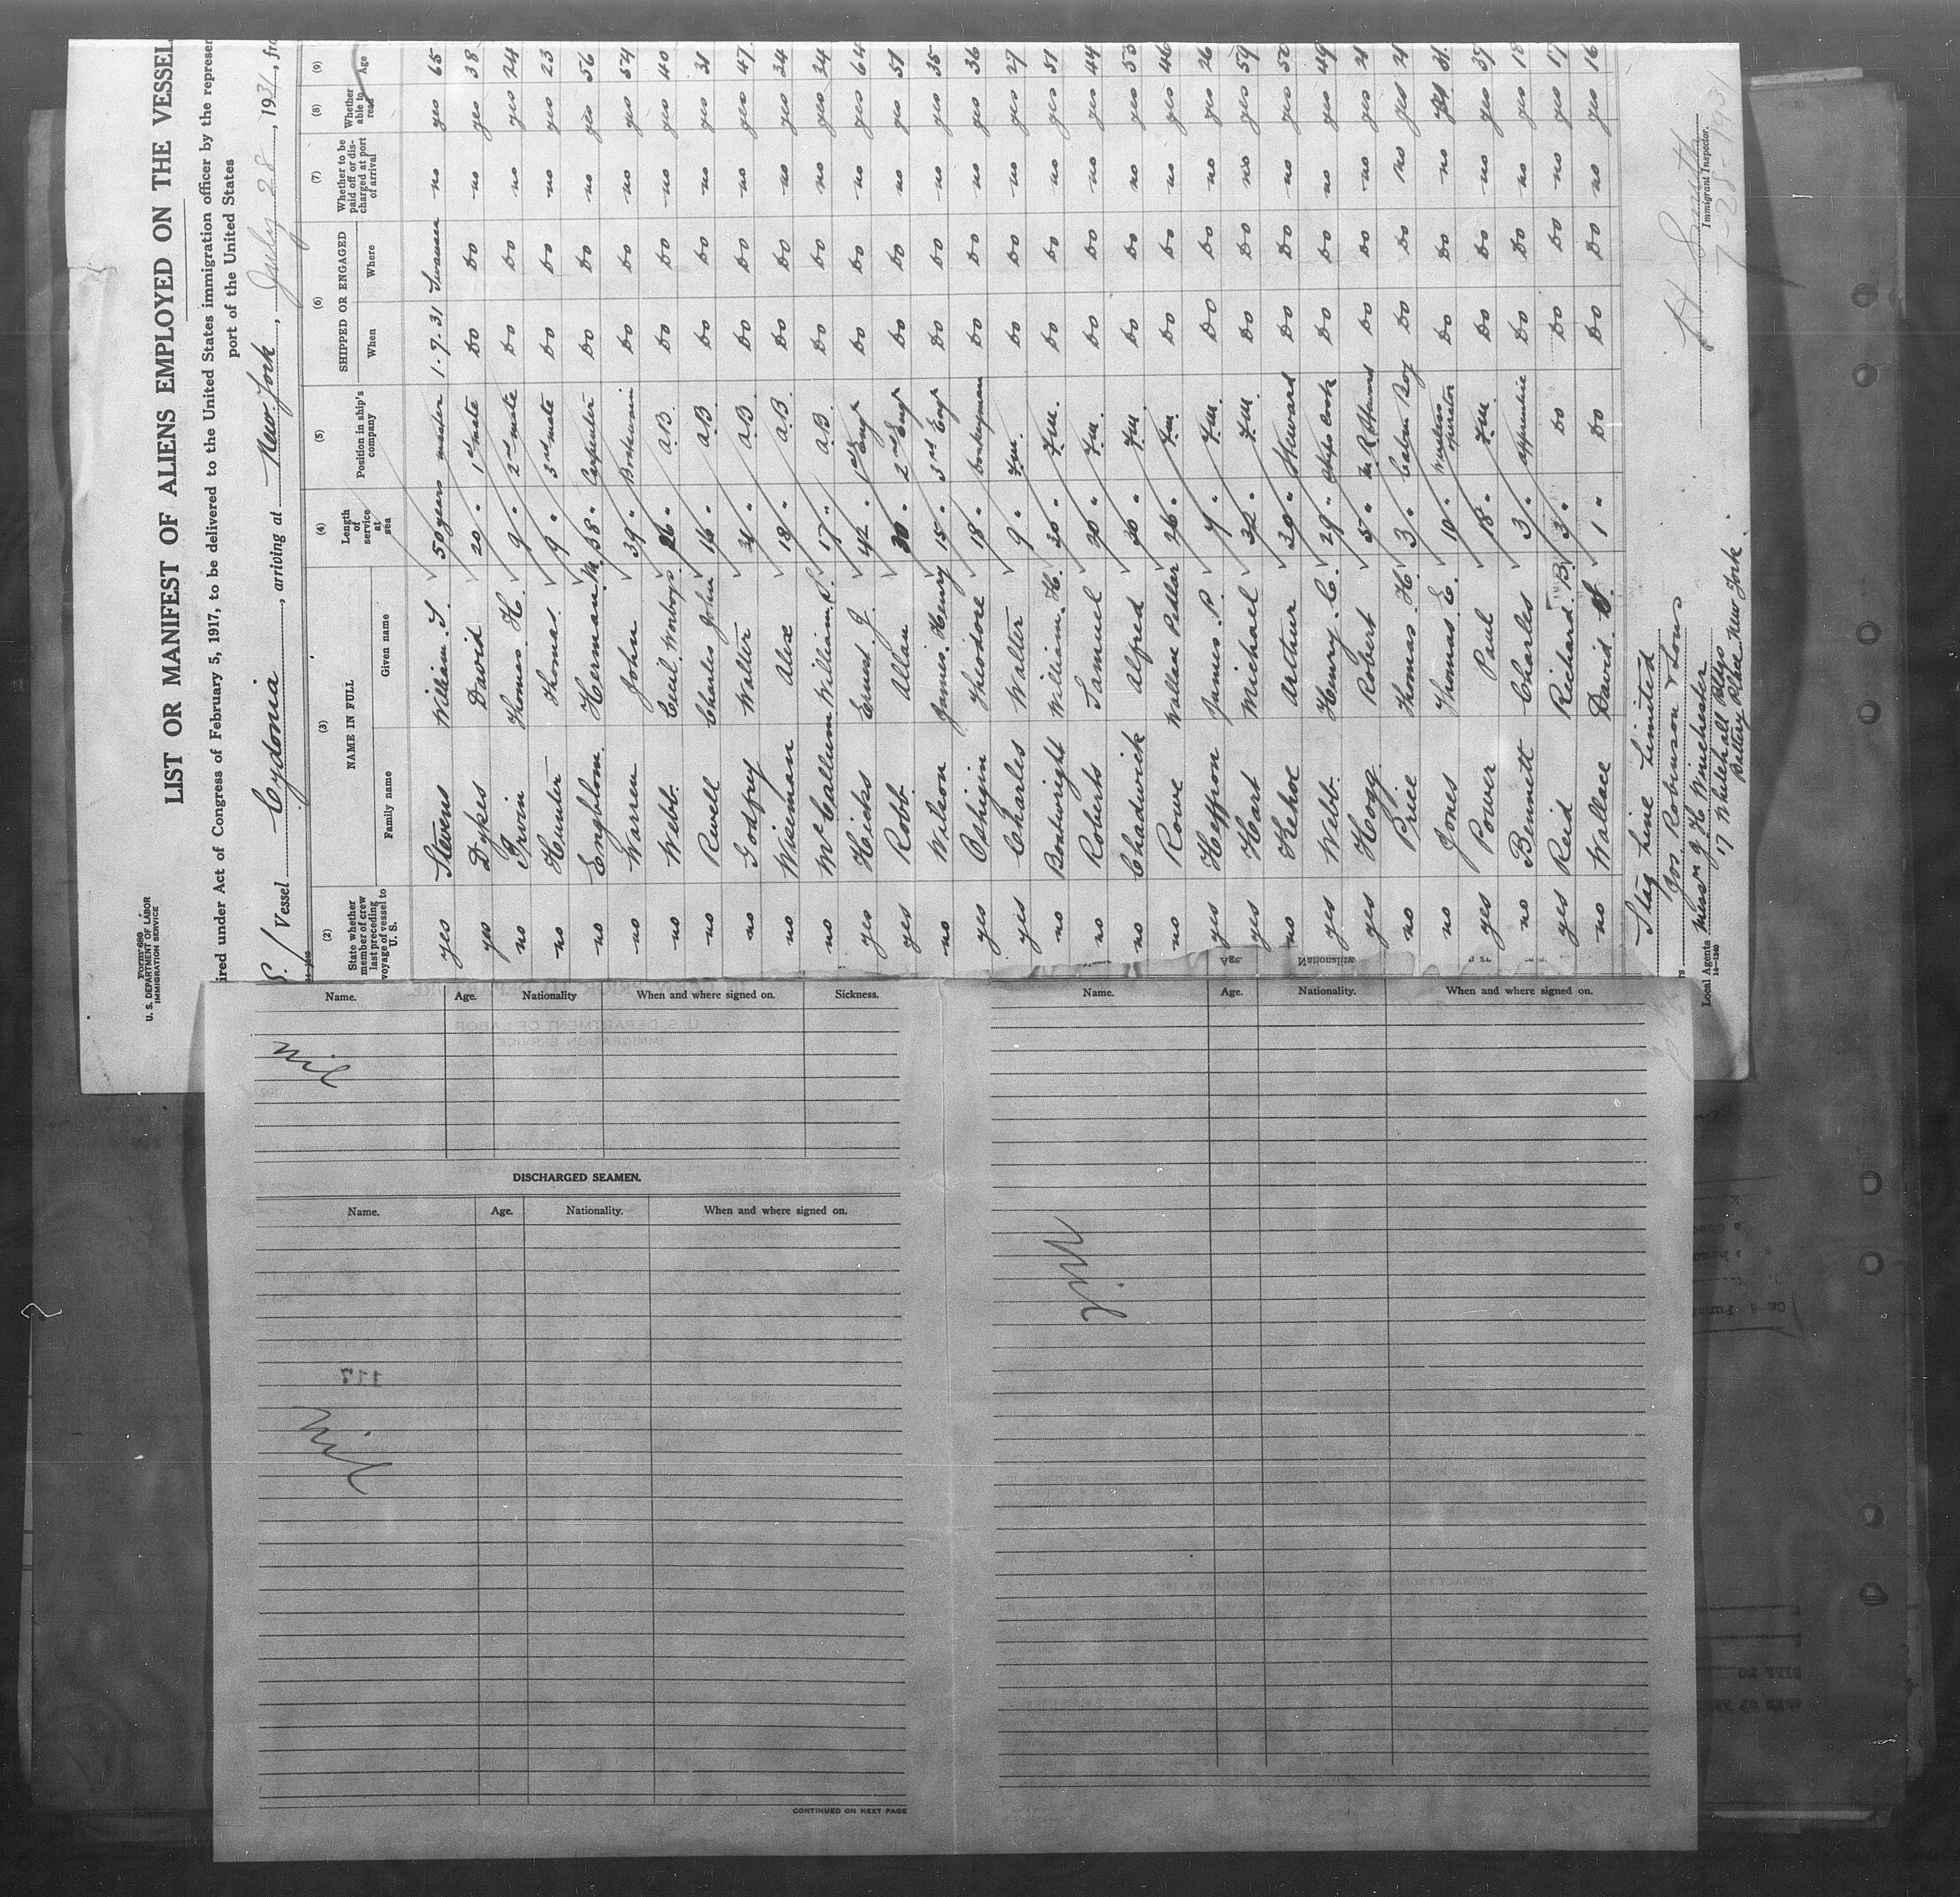 Form 680
U. S. DEPARTMENT OF LABOR
IMMIGRATION SERVICE
LIST OR MANIFEST OF ALIENS EMPLOYED ON THE VESSEL
ired under Act of Congress of February 5, 1917, to be delivered to the United States immigration officer by the represen
port of the United States
S. Vessel Cydonia, arriving at New York, July 28, 1931, fro
14—1240
(2) (3) (4) (5) (6) (7) (8) (9)
State whether member of crew last preceding voyage of vessel to U. S. NAME IN FULL Family name Given name Length of service at sea Position in ship's company SHIPPED OR ENGAGED When Where Whether to be paid off or discharged at port of arrival Whether able to read Age
yes Stevens William. S. 50 years master 1.7.31 Swansea no yes 65
yes Dykes David 20 " 1st mate Do Do no yes 38
no Irvin Thomas H. 9 " 2nd mate Do Do no yes 24
no Hunter Thomas. 9 " 3rd mate Do Do no yes 23
no Engblom. Herman. M. 38 " Carpenter Do Do no yes 56
no Warren John 39 " Boatswain Do Do no yes 54
no Webb. Cecil. Worboys. 26 " A.B. Do Do no yes 40
no Rewell Charles John 16 " A.B. Do Do no yes 31
no Godfrey Walter " A.B. Do Do no yes 47
no Wiseman Alex 18 " A.B. Do Do no yes 34
no McCallum William. S. 17 " A.B. Do Do no yes 34
yes Hicks Ernest J. 42 " 1st Engr Do Do no yes 64
yes Robb. Allan 30 " 2nd Engr Do Do no yes 51
no Wilson James. Henry 15 " 3rd Engr Do Do no yes 35
yes Oshigin Theodore 18 " Donkeyman Do Do no yes 36
yes Charles Walter 9 " F.M. Do Do no yes 27
no Boatwright William. H. 30 " F.M. Do Do no yes 51
no Roberts Samuel 20 " F.M. Do Do no yes 44
no Chadwick Alfred 30 " F.M. Do Do no yes 53
no Rowe Wallace Pedlar 26 " F.M. Do Do no yes 46
yes Heffron James. P. 7 " F.M. Do Do no yes 26
yes Hart Michael 32 " F.M. Do Do no yes 59
no Kehoe Arthur 30 " Steward Do Do no yes 50
yes Webb. Henry. C. 29 " Ships Cook Do Do no yes 49
yes Hogg. Robert 5 " M.R. Steward Do Do no yes 21
no Price Thomas. H. 3 " Cabin Boy Do Do no yes 21
no Jones Thomas. E. 10 " Wireless operator Do Do no yes 31
yes Power Paul 18 " F.M. Do Do no yes 37
no Bennett Charles 3 " apprentice Do Do no yes 18
yes Reid Richard. B. 3 " Do Do Do no yes 17
no Wallace David. S. 1 " Do Do Do no yes 16
Stag Line Limited
Jos. Robinson & Sons
Local Agents Messrs J. H. Winchester
17 Whitehall Bldgs
Battery Place New York.
14—1240
Immigrant Inspector.
7-28-1931
Name. Age. Nationality When and where signed on. Sickness.
Nil
DISCHARGED SEAMEN.
Name. Age. Nationality. When and where signed on.
117
Nil
CONTINUED ON NEXT PAGE
Name. Age. Nationality. When and where signed on.
Nil